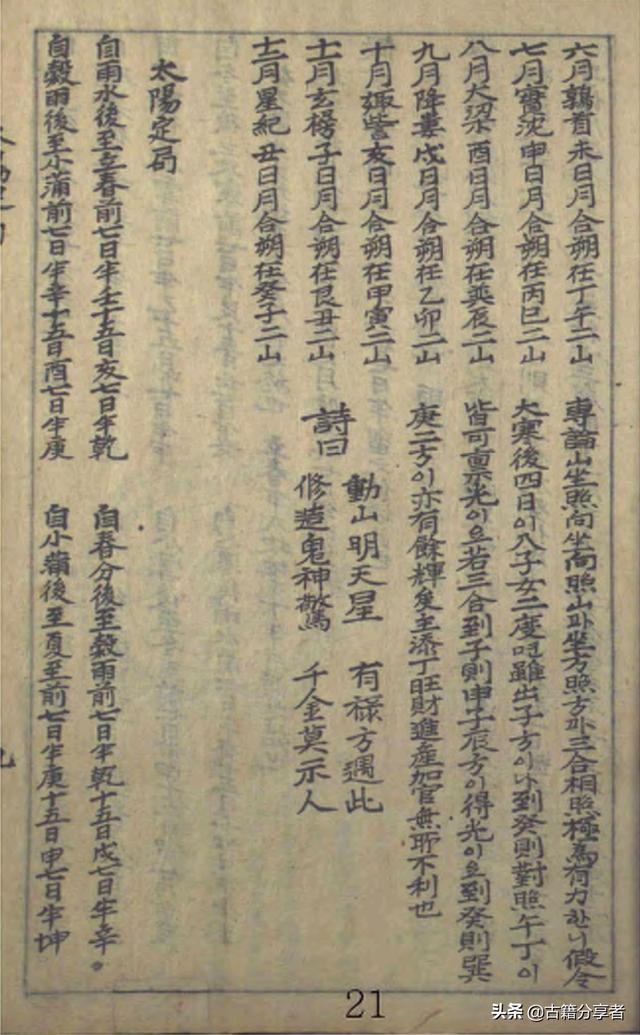 六月鶉首未日月合朔在丁午二山
七月實沈申日月合朔在丙巳二山
八月大梁酉日月合朔在巽辰二山
九月降婁戌日月合朔在乙卯二山
十月娵訾亥日月合朔在甲寅二山
十一月玄枵子日月合朔在艮丑二山
十二月星紀丑日月合朔在癸子二山
專論山坐照向坐向照山과坐方照方과三合相照極爲有力하니假令
大寒後四日이入子女二度면雖出子方이나到癸則對照午丁이
皆可稟光이오若三合到子則申子辰方이得光이오到癸則巽
庚二方이亦有餘輝矣主添丁旺財進産加官無所不利也
詩曰
動山明天星 有祿方遇此
修造鬼神驚 千金莫示人
太陽定局
自雨水後至立春前七日半壬十五日亥七日半乾
自春分後至穀雨前七日半乾十五日戌七日半辛。
自穀雨後至小滿前七日半辛十五日酉七日半庚
自小滿後至夏至前七日半庚十五日申七日半坤
21
头条 @古籍分享者